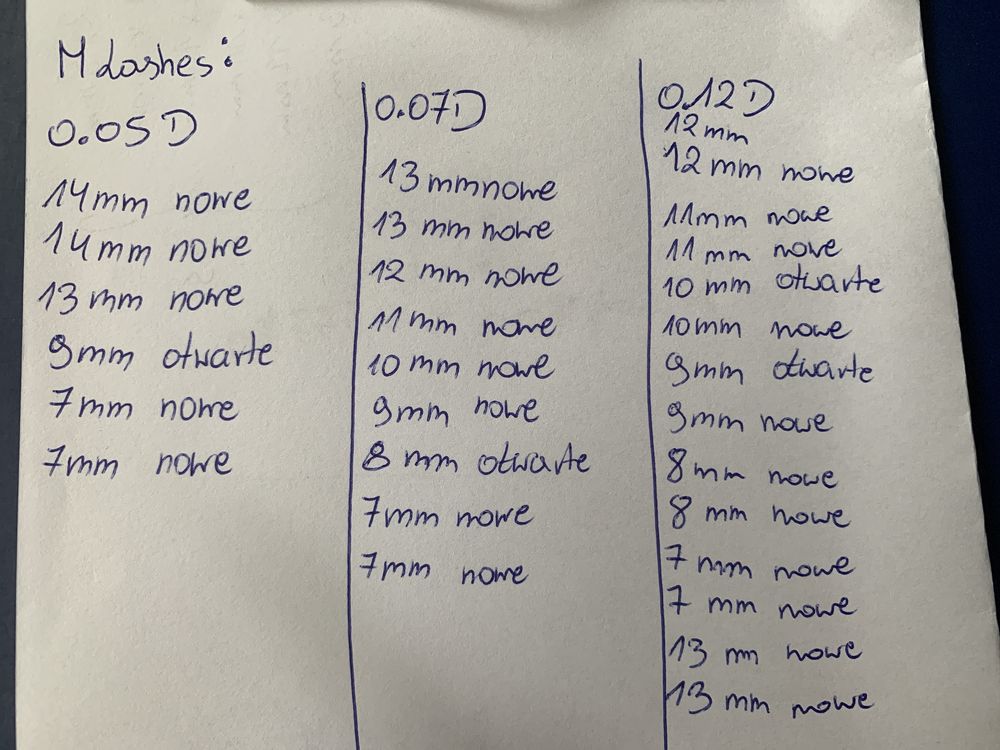 M lashes:
0.05 D
14mm nowe
14mm nowe
13mm nowe
9mm otwarte
7mm nowe
7mm nowe
0.07D
13mm nowe
13 mm nowe
12 mm nowe
11mm nowe
10 mm nowe
9mm nowe
8 mm otwarte
7mm nowe
7mm nowe
0.12D
12mm
12 mm nowe
11mm nowe
11 mm nowe
10 mm otwarte
10mm nowe
9mm otwarte
9mm nowe
8mm nowe
8 mm nowe
7 mm nowe
7 mm nowe
13 mm nowe
13 mm nowe